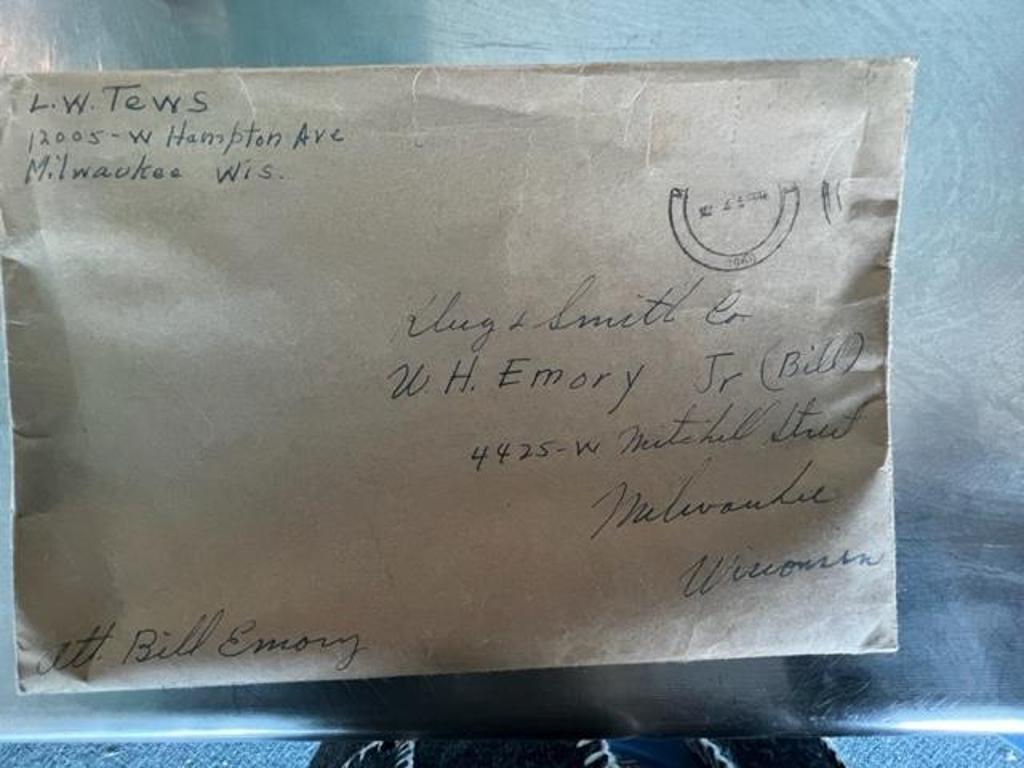 L.W. Tews
12005-W Hampton Ave
Milwaukee Wis.
1960
Klug & Smith Co
W. H. Emory Jr (Bill)
4425-W Mitchell Street
Milwaukee
Wisconsin
Att. Bill Emory